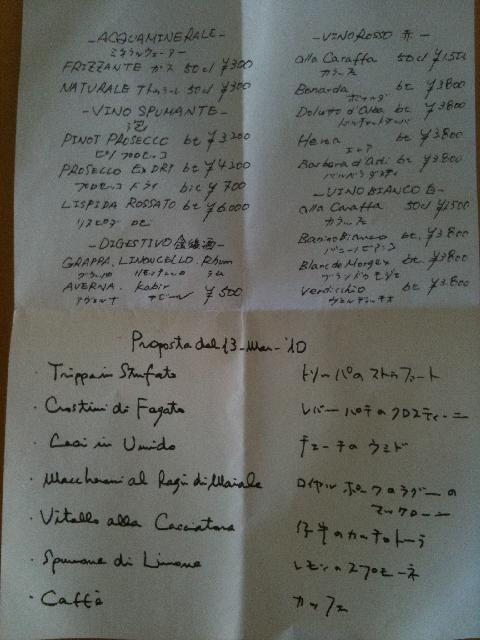 -ACQUAMINERALE-
ミネラルウォーター
FRIZZANTE ガス 50cl ¥300
NATURALE ナチュラーレ 50cl ¥300
-VINO SPUMANTE-
泡
PINOT PROSECCO bt ¥3200
ピノ プロセッコ
PROSECCO EX DRY bt ¥4200
プロセッコ ドライ bic ¥700
LISPIDA ROSSATO bt ¥6000
リスピダ ロゼ
-DIGESTIVO 食後酒-
GRAPPA. LIMONCELLO. Rhum
グラッパ リモンチェッロ ラム
AVERNA. Kabir
アヴェルナ カビール ¥500
-VINO ROSSO 赤-
alla Caraffa 50cl ¥1500
カラーフェ
Bonarda bt ¥3800
ボナルダ
Dolcetto d'Alba bt ¥3800
ドルチェットダルバ
bt ¥3800
Barbera d'Asti bt ¥3800
バルベラダスティ
-VINO BIANCO 白-
alla Caraffa 50cl ¥1500
カラーフェ
Bianco bt. ¥3800
ビアンコ
Blanc de Morgex bt. ¥3800
ブランドゥモジェ
Verdicchio bt. ¥3800
ヴェルディッキオ
Proposta del 13-Mar-'10
・Trippa in Stufato トリッパのストゥファート
・Crostini di Fegato レバーパテのクロスティーニ
・Ceci in Umido チェーチのウミド
・Maccheroni al Ragù di Maiale ロイヤルポークのラグーの
マッケローニ
・Vitello alla Cacciatora 仔牛のカッチャトーラ
・Spumone di Limone レモンのスプモーネ
・Caffè カッフェ